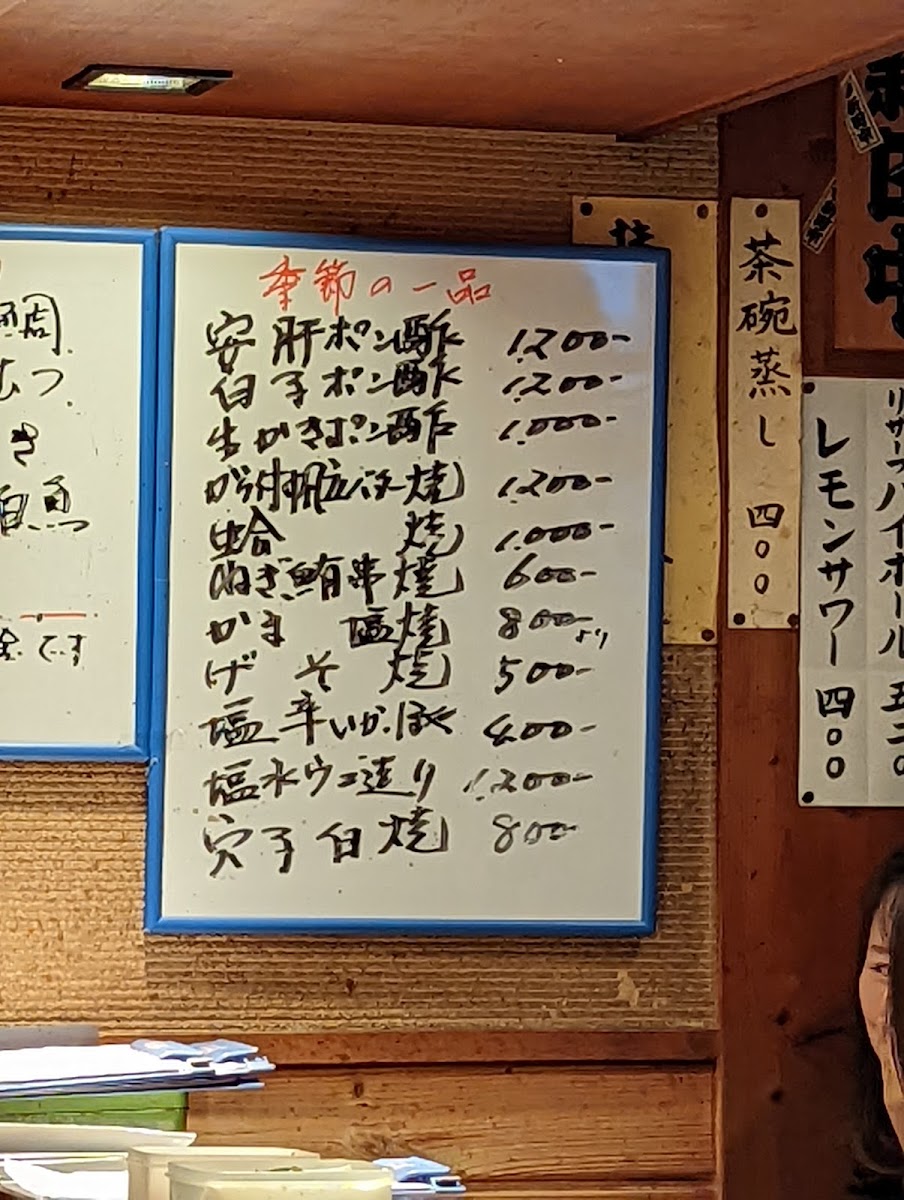 季節の一品
安肝ポン酢 1.200-
白子ポン酢 1.200-
生かきポン酢 1.000-
から付帆立バター焼 1.200-
蛤 焼 1.000-
ねぎ鮪串焼 600-
かま 塩焼 800-より
げそ焼 500-
塩辛いか.ほや 400-
塩水ウニ造り 1.200-
穴子白焼 800-
むつ
き
白魚
です
茶碗蒸し 四〇〇
レモンサワー 四〇〇
リザーブハイボール 五二〇